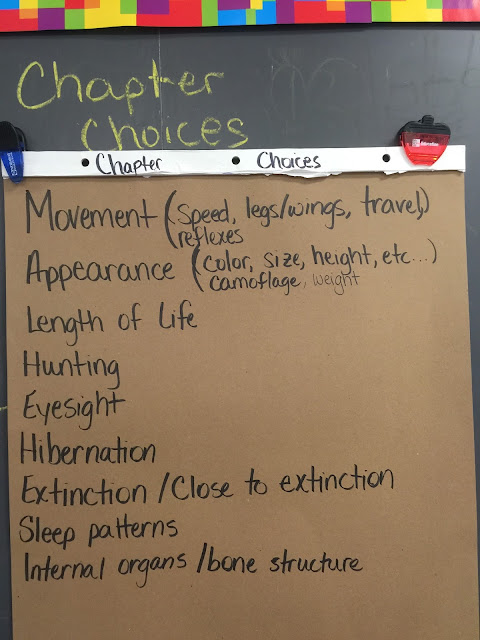 Chapter
Choices
Chapter Choices
Movement (Speed, legs/wings, travel,)
reflexes
Appearance (color, size, height, etc...)
camoflage, weight
Length of Life
Hunting
Eyesight
Hibernation
Extinction / Close to extinction
Sleep patterns
Internal organs / bone structure